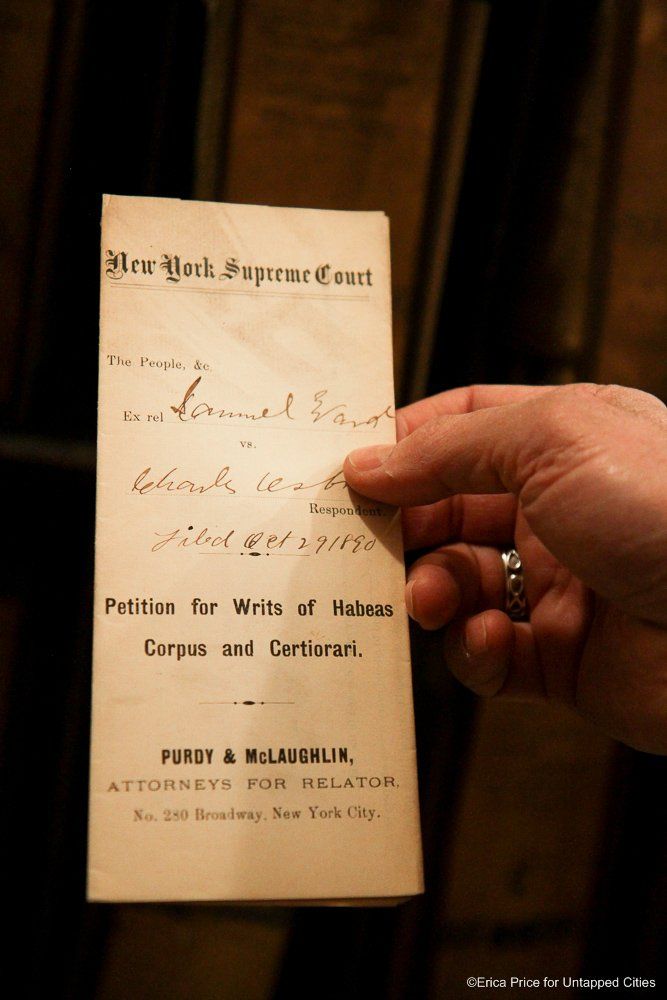 New York Supreme Court
The People, &c.
Ex rel Samuel Ward
vs.
Charles
Respondent.
Filed Oct 29 1890
Petition for Writs of Habeas
Corpus and Certiorari.
PURDY & McLAUGHLIN,
ATTORNEYS FOR RELATOR,
No. 280 Broadway, New York City.
©Erica Price for Untapped Cities